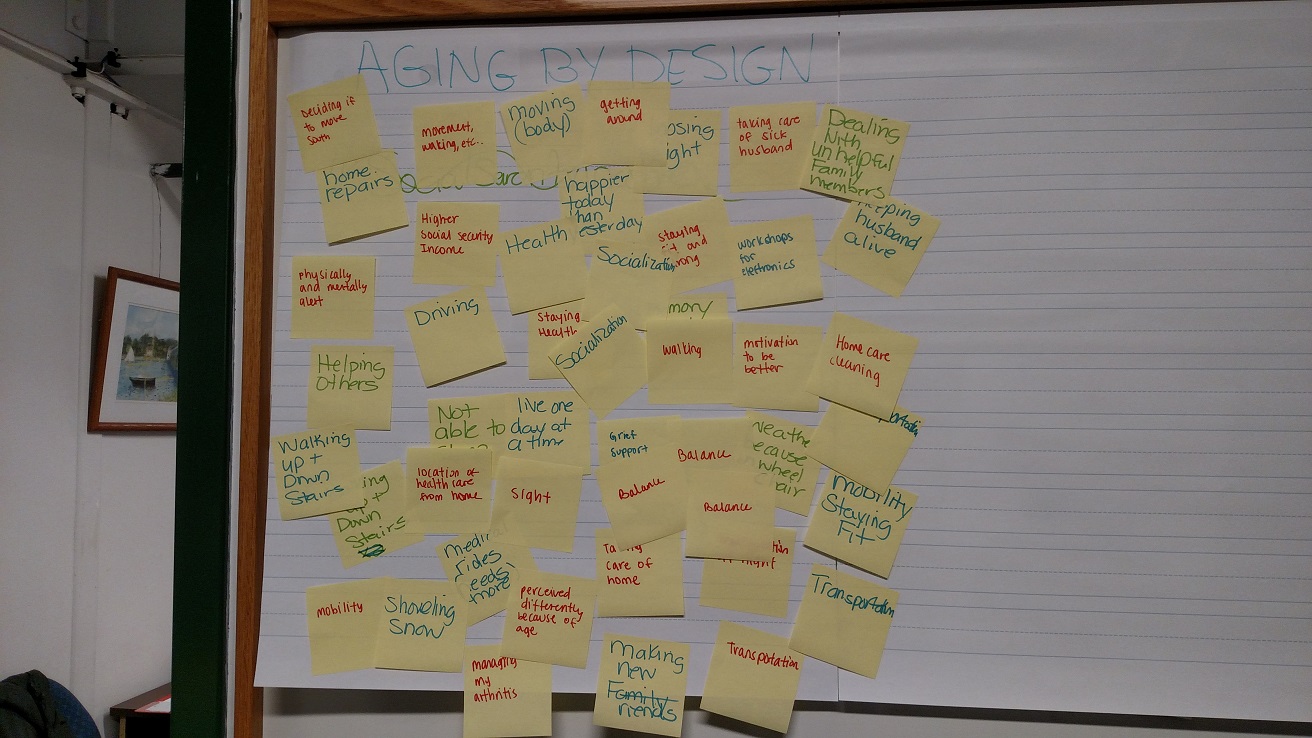 AGING BY DESIGN
Deciding if
to move
South
movement,
walking, etc..
moving
(body)
getting
around
taking care
of sick
husband
Dealing
With
unhelpful
Family
members
home
repairs
happier
today
Higher
Social security
Income
Health
Socialization
staying
and
workshops
for
electronics
husband
alive
physically
and mentally
alert
Driving
Staying
Health
Socialization
mony
walking
motivation
to be
better
Home care
cleaning
Helping
Others
Not
able to
live one
day at
a time
Grief
Support
Balance
Balance
Balance
wheel
Walking
up +
Down
Stairs
Down
Stairs
location of
health care
from home
Sight
mobility
Staying
Fit
rides
more
care of
home
mobility
Shoveling
Snow
perceived
differently
because of
age
Transportation
managing
my
arthritis
making
new
Family
riends
Transportation